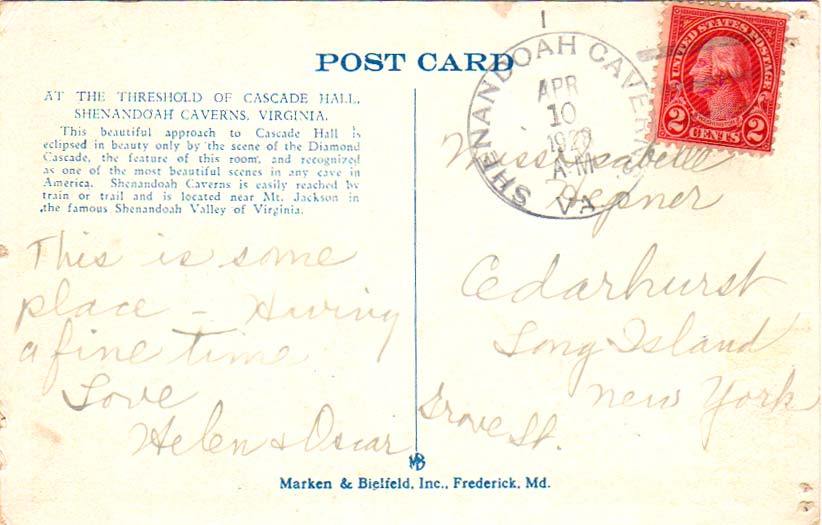 POST CARD
AT THE THRESHOLD OF CASCADE HALL,
SHENANDOAH CAVERNS, VIRGINIA.
This beautiful approach to Cascade Hall is
eclipsed in beauty only by the scene of the Diamond
Cascade, the feature of this room, and recognized
as one of the most beautiful scenes in any cave in
America. Shenandoah Caverns is easily reached by
train or trail and is located near Mt. Jackson in
the famous Shenandoah Valley of Virginia.
This is some
place – Having
a fine time
Love
Helen & Oscar
1
SHENANDOAH CAVERNS
APR
10
A-M
VA
UNITED STATES POSTAGE
2 CENTS 2
Miss Isabelle
Hepner
Cedarhurst
Long Island
New York
Grove St.
MB
Marken & Bielfeld, Inc., Frederick, Md.